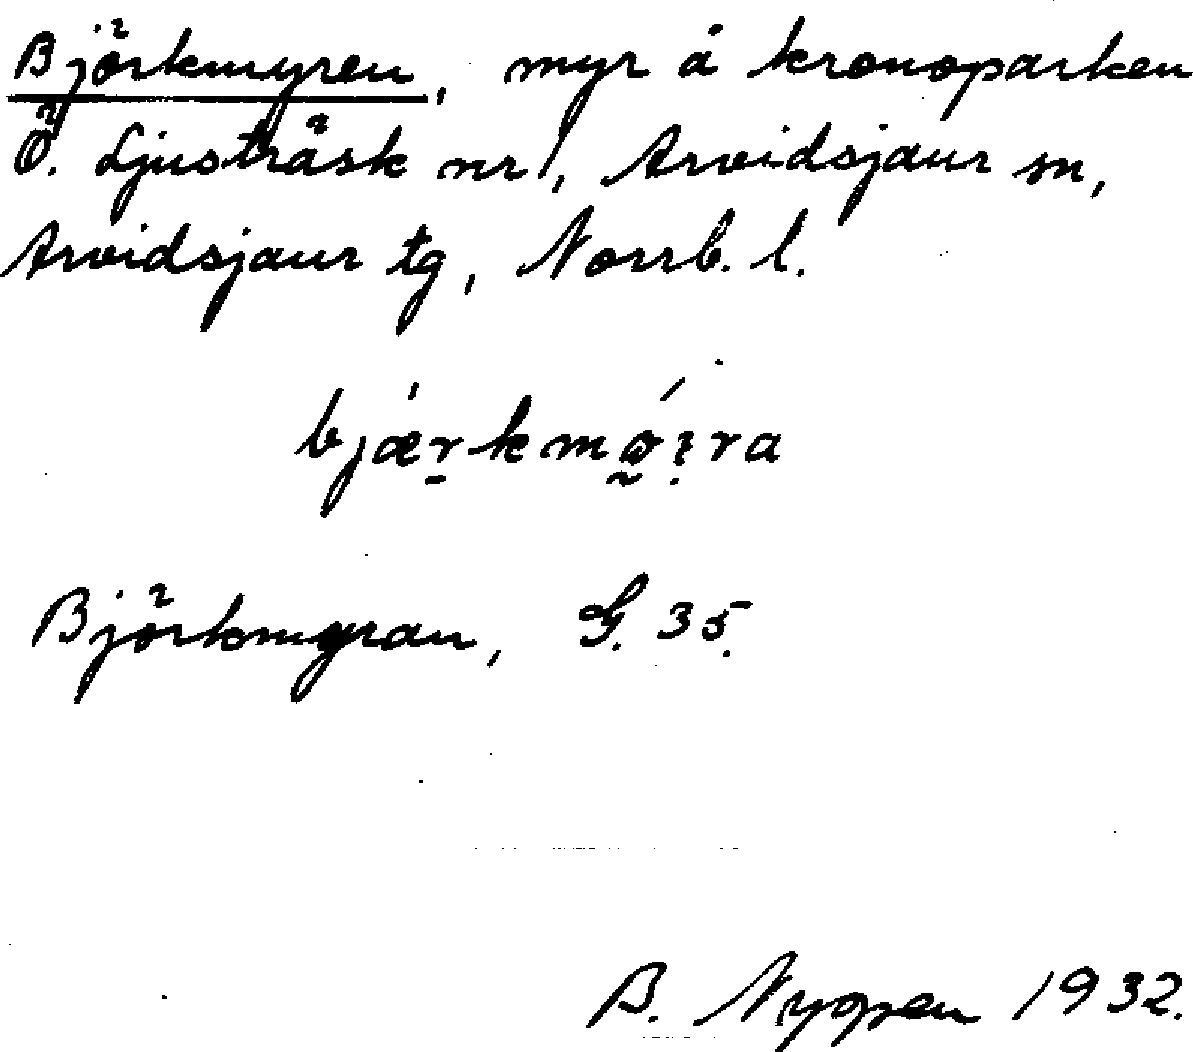 Björkmyren, myr å kronoparken
Ö. Ljusträsk nr 1, Arvidsjaur sn,
Arvidsjaur tg, Norrb. l.
Björkmyran, G. 35.
B. Nygren 1932.